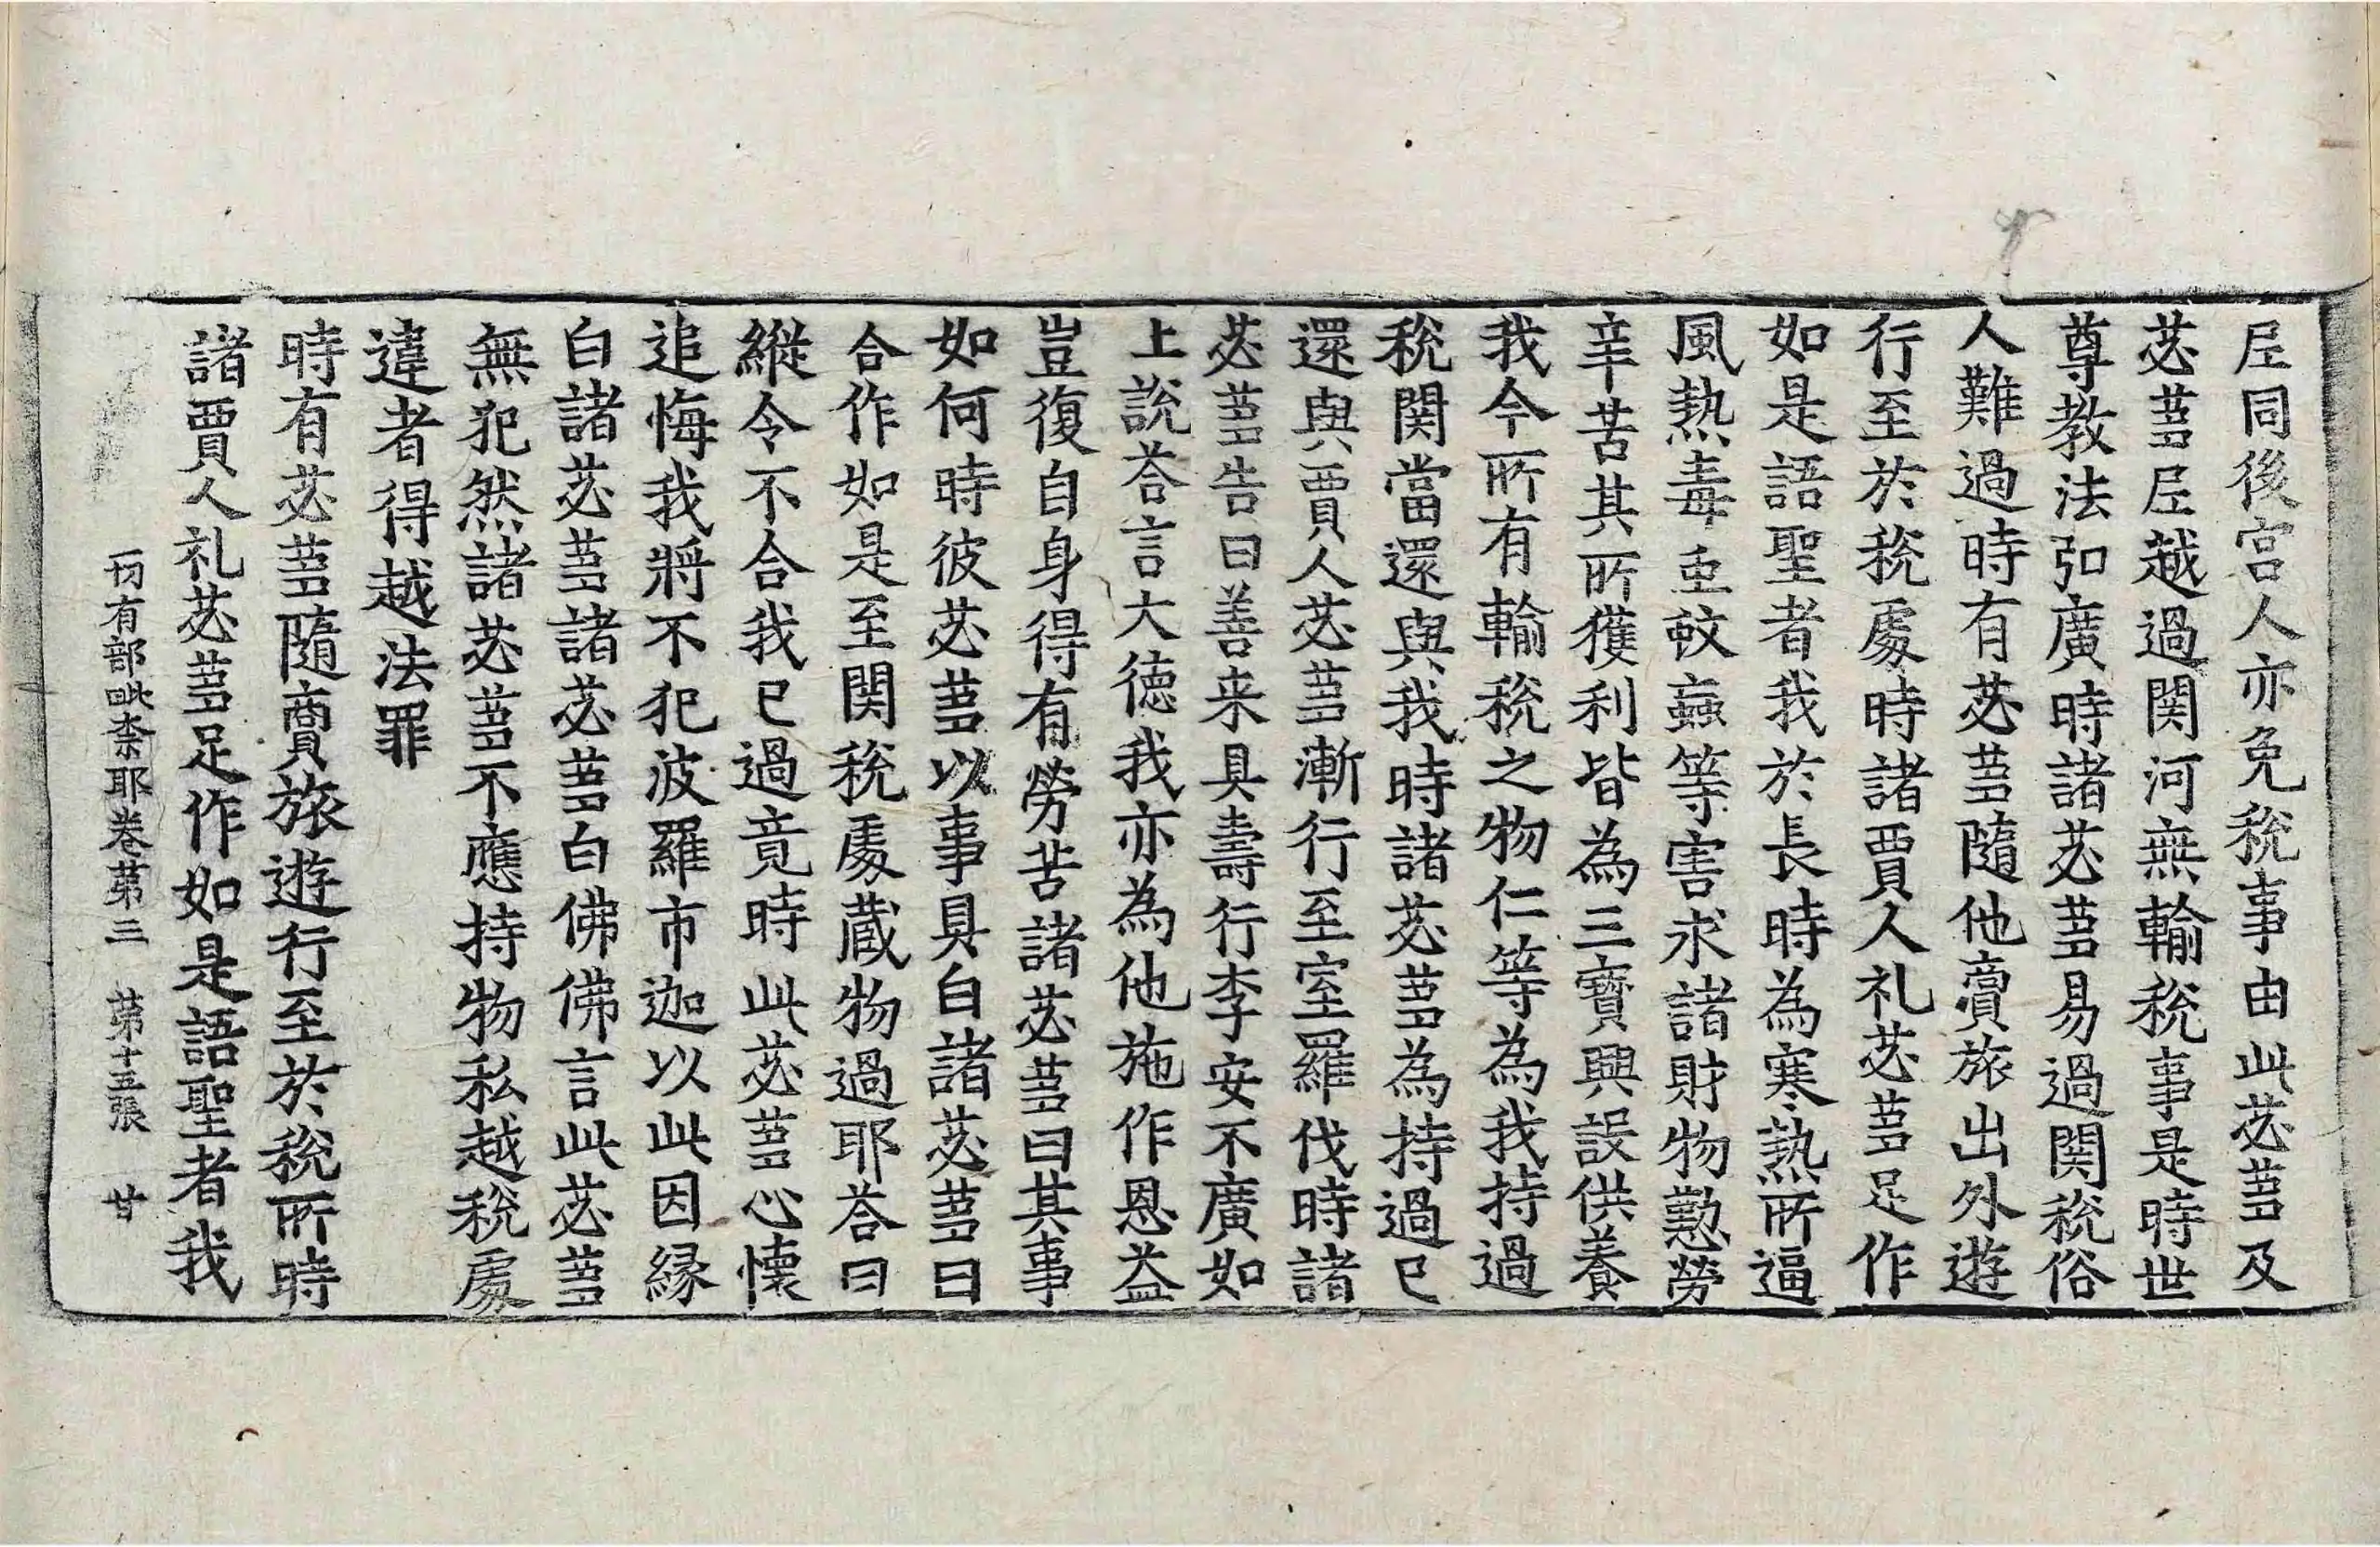 𡰱同後宮人亦免稅事由此苾蒭及
苾蒭𡰱越過関河無輸稅事是時世
尊教法弘廣時諸苾蒭易過関稅俗
人難過時有苾蒭隨他賣旅出外遊
行至於稅處時諸賈人礼苾蒭足作
如是語聖者我於長時為寒熱所逼
風熱毒虫蚊蝱等害求諸財物懃勞
辛苦其所獲利皆為三寶興設供養
我今所有輸稅之物仁等為我持過
稅関當還與我時諸苾蒭為持過已
還與賈人苾蒭漸行至室羅伐時諸
苾蒭告曰善来具壽行李安不廣如
上說荅言大德我亦為他施作恩益
豈復自身得有勞苦諸苾蒭曰其事
如何時彼苾蒭以事具白諸苾蒭曰
合作如是至関稅處蔵物過耶荅曰
縱令不合我已過竟時此苾蒭心懷
追悔我將不犯波羅市迦以此因縁
白諸苾蒭諸苾蒭白佛佛言此苾蒭
無犯然諸苾蒭不應持物私越稅處
違者得越法罪
時有苾蒭隨商旅遊行至於稅所時
諸賈人礼苾蒭足作如是語聖者我
一切有部毗柰耶卷第三　第十五張　甘